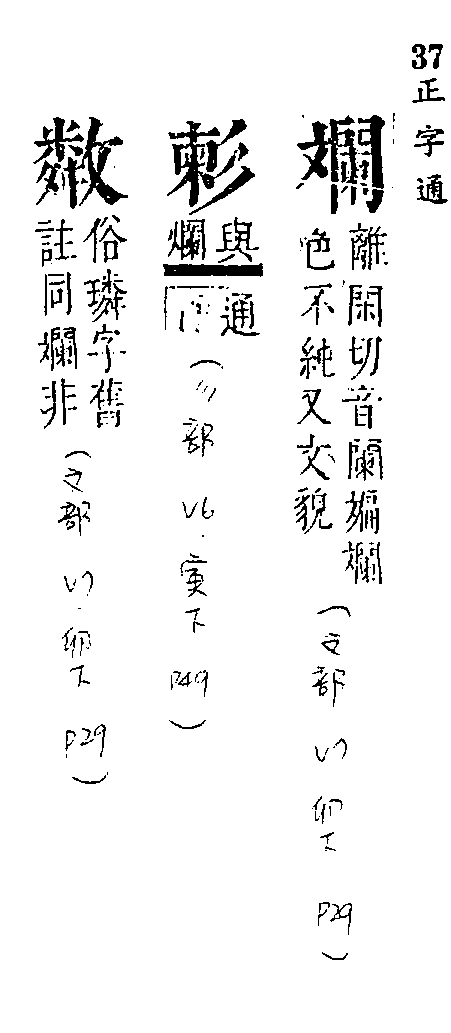 37 正字通
斕
離閑切音闌斒斕
色不純又文貌
(文部 V7 卯下 P29)
與
斕
通
(彡部 V6. 寅下 P49)
俗璘字舊
註同斕非
(文部 V7. 卯下 P29)